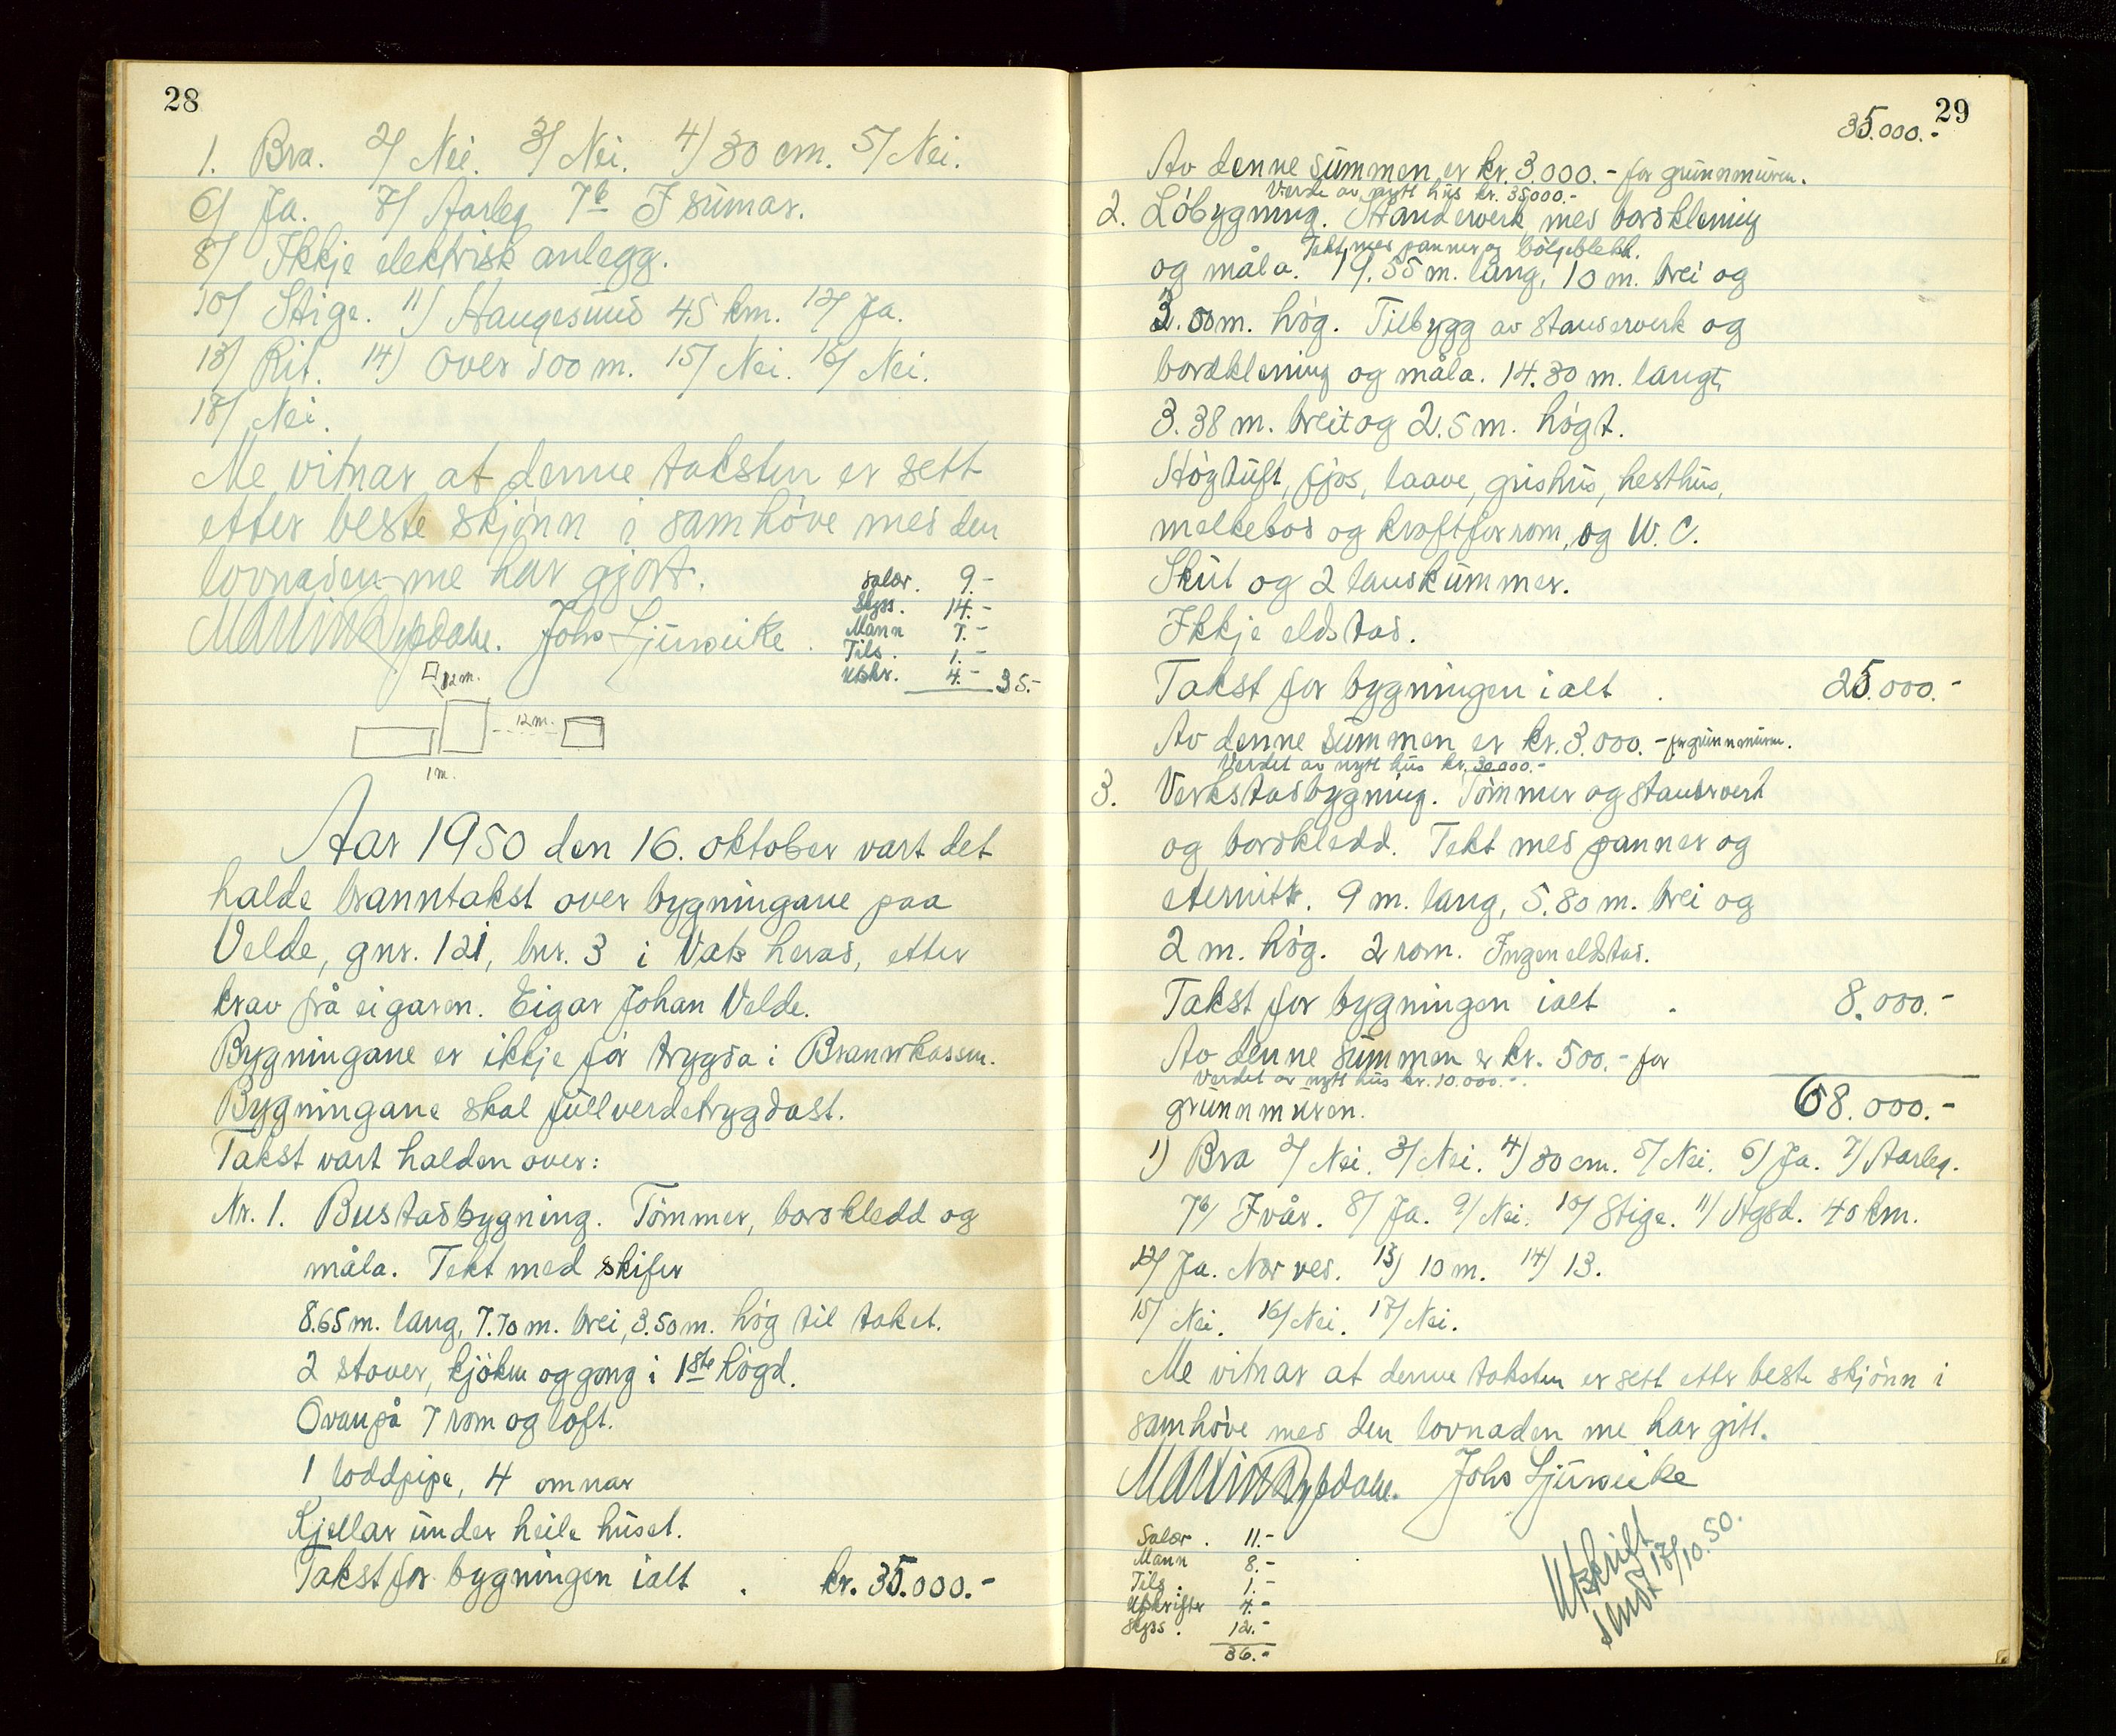 28
1. Bra. 2/ Nei. 3/ Nei. 4/ 30 cm. 5/ Nei.
6/ Ja. 7/ Aarleg 7b I sumar.
8/ Ikkje elektrisk anlegg.
10/ Stige. 11/ Haugesund 45 km. 12/ Ja.
13/ Rit. 14) Over 100 m. 15/ Nei. 16/ Nei.
17/ Nei.
Me vitnar at denne taksten er sett
etter beste skjønn i samhøve med den
lovnaden me har gjort.
Salær. 9.-
Skyss. 14.-
Mann 7.-
Tils. 1.-
Utskr. 4.- 35.-
Johs Ljünevike.
12m.
12m.
1m.
Aar 1950 den 16. oktober vart det
halde branntakst over bygningane paa
Velde, gnr. 121, bnr. 3 i Vats herad, etter
krav frå eigaren. Eigar Johan Velde.
Bygningane er ikkje før trygda i Brannkassen.
Bygningane skal fullverdetrygdast.
Takst vart halden over:
Nr. 1. Bustadbygning. Tømmer, bordkledd og
måla. Tekt med skifer
8.65 m. lang, 7.70 m. brei, 3.50 m. høg til taket.
2 stover, kjøken og gong i 1ste høgd.
Ovanpå 7 rom og loft.
1 loddpipe, 4 omnar
Kjellar under heile huset.
Takst for bygningen ialt . kr. 35.000.-
29
35.000.-
Av denne summen er kr. 3.000.- for grunnmuren.
Verde av nytt hus kr. 35000.-
2. Løbygning. Standerverk med bordklening
Tekt med panner og bølgeblekk.
og måla. 19.55 m. lang, 10 m. brei og
3.00 m. høg. Tilbygg av standerverk og
bordklening og måla. 14.30 m. langt,
3.38 m. breit og 2.5 m. høgt.
Høgtuft, fjøs, laave, grishus, hesthus,
melkebod og kraftforrom, og W.C.
Skut og 2 landkummer.
Ikkje eldstad.
Takst for bygningen ialt . 25.000.-
Av denne summen er kr. 3.000.- for grunnmuren.
Verdet av nytt hus kr. 30.000.-
3. Verkstadbygning. Tømmer og standerverk
og bordkledd. Tekt med panner og
eternitt. 9 m. lang, 5.80 m. brei og
2 m. høg. 2 rom. Ingen eldstad.
Takst for bygningen ialt . 8.000.-
Av denne summen er kr. 500.- for
Verdet av nytt hus kr. 10.000.-
grunnmuren. 68.000.-
1) Bra 2/ Nei. 3/ Nei. 4) 30 cm. 5/ Nei. 6/ Ja. 7/ Aarleg.
7b/ I vår. 8/ Ja. 9/ Nei. 10/ Stige. 11/ Hgsd. 40 km.
12/ Ja. Nær ved. 13) 10 m. 14) 13.
15/ Nei. 16/ Nei. 17/ Nei.
Me vitnar at denne taksten er sett etter beste skjønn i
samhøve med den lovnaden me har gitt.
Johs Ljünevike
Salær. 11.-
Mann 8.-
Tils. 1.-
Utskrifter 4.-
Skyss. 12.-
36.-
Utskrift
sendt 17/10.50.